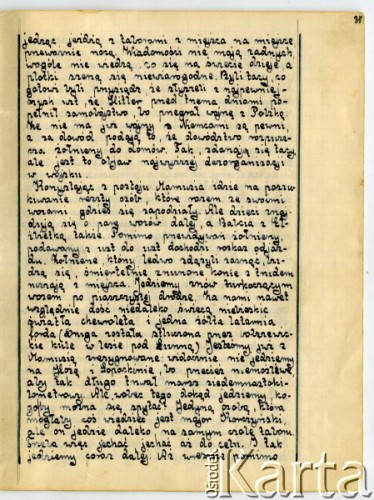 jedząc, jeżdżą z taborami z miejsca na miejsce
przeważnie nocą. Wiadomości nie mają żadnych,
wogóle nie wiedzą, co się na świecie dzieje, a
plotki szerzą się niewiarogodne. Byli tacy, co
gotowi byli przysiądz że słyszeli z najpewniej-
szych ust, że Hitler przed trzema dniami po-
pełnił samobójstwo, bo przegrał wojnę z Polską.
Że nie ma już wojny z Niemcami są pewni,
a za dowód podają to, że dowództwo rozpusz-
cza żołnierzy do domów. Tak, zdarzają się tacy
ale jest to objaw najwyższej dezorganizacji
w wojsku.
Korzystając z postoju Mamusia idzie na poszu-
kiwanie reszty osób, które razem ze swemi
wozami gdzieś się zapodziały. Ale dzieci znaj-
dują się o parę wozów dalej, a Babcia z El-
żbietką także. Pomimo przewidywań żołnierzy
podawany z ust do ust dochodzi rozkaz odjaz-
du. Żołnierze, którzy ledwo zdążyli zasnąć, bu-
dzą się, śmiertelnie znużone konie z trudem
ruszają z miejsca. Jedziemy znów turkoczącym
wozem po piaszczystej drodze. Za nami nawet
względnie dość niedaleko świecą niebieskie
światła chewroleta i jedna żółta latarnia
forda. (Druga została stłuczona przez
kule w lesie pod) Jesteśmy już z
Mamusią zrezygnowane: widocznie nie jedziemy
na Horą i Łopockinie, bo przecież niemożliwe,
aby tak długo trwał marsz siedemnastokilo-
metrowy. Ale wobec tego dokąd jedziemy, ko-
goby można się spytać? Jedyną osobą, która
mogłaby coś wiedzieć jest major
ale on jedzie daleko na samym czole taboru.
Trzeba więc jechać, jechać aż do celu. I tak
jedziemy coraz dalej. Aż wreszcie pomimo
Ośrodek
Karta